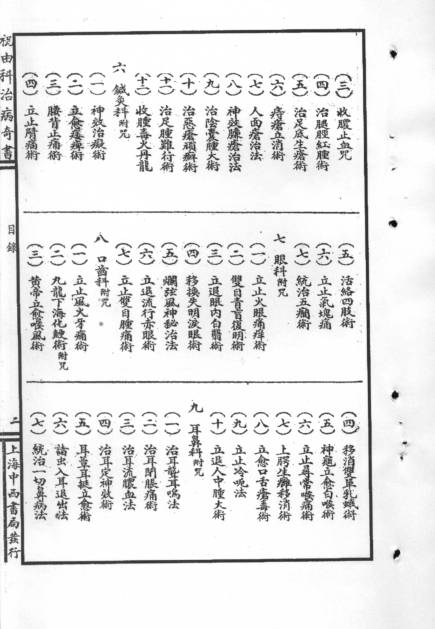 祝由科治病奇書
目錄
二
上海中西書局發行
(三) 收膿止血咒
(四) 治腿脛紅腫術
(五) 治足底生瘡術
(六) 痔瘡立消術
(七) 人面瘡治法
(八) 神效臁瘡治法
(九) 治陰囊腫大術
(十) 治惡瘡頑癬術
(十一) 治足腫難行術
(十二) 收腫毒火丹龍
六 鍼灸科附咒
(一) 神效治癡術
(二) 立愈痿痺術
(三) 腰背止痛術
(四) 立止臂痛術
(五) 活絡四肢術
(六) 立止氣塊痛
(七) 統治五癎術
七 眼科附咒
(一) 立止火眼痛痒術
(二) 雙目青盲復明術
(三) 立退眼內白翳術
(四) 移換失明淚眼術
(五) 爛弦風神秘治法
(六) 立退流行赤眼術
(七) 立止雙目腫痛術
八 口齒科附咒
(一) 立止風火牙痛術
(二) 九龍下海化鯁術附咒
(三) 黃帝立愈喉風術
(四) 移消雙單乳蛾術
(五) 神龜立愈白喉術
(六) 立止尋常喉痛術
(七) 上腭生癰移消術
(八) 立愈口舌瘡毒術
(九) 立止冷呃法
(十) 立退人中腫大術
九 耳鼻科附咒
(一) 治耳聾耳鳴法
(二) 治耳閉脹痛術
(三) 治耳流膿血法
(四) 治耳定神效術
(五) 耳蕈耳挺立愈術
(六) 諸虫入耳退出法
(七) 統治一切鼻病法